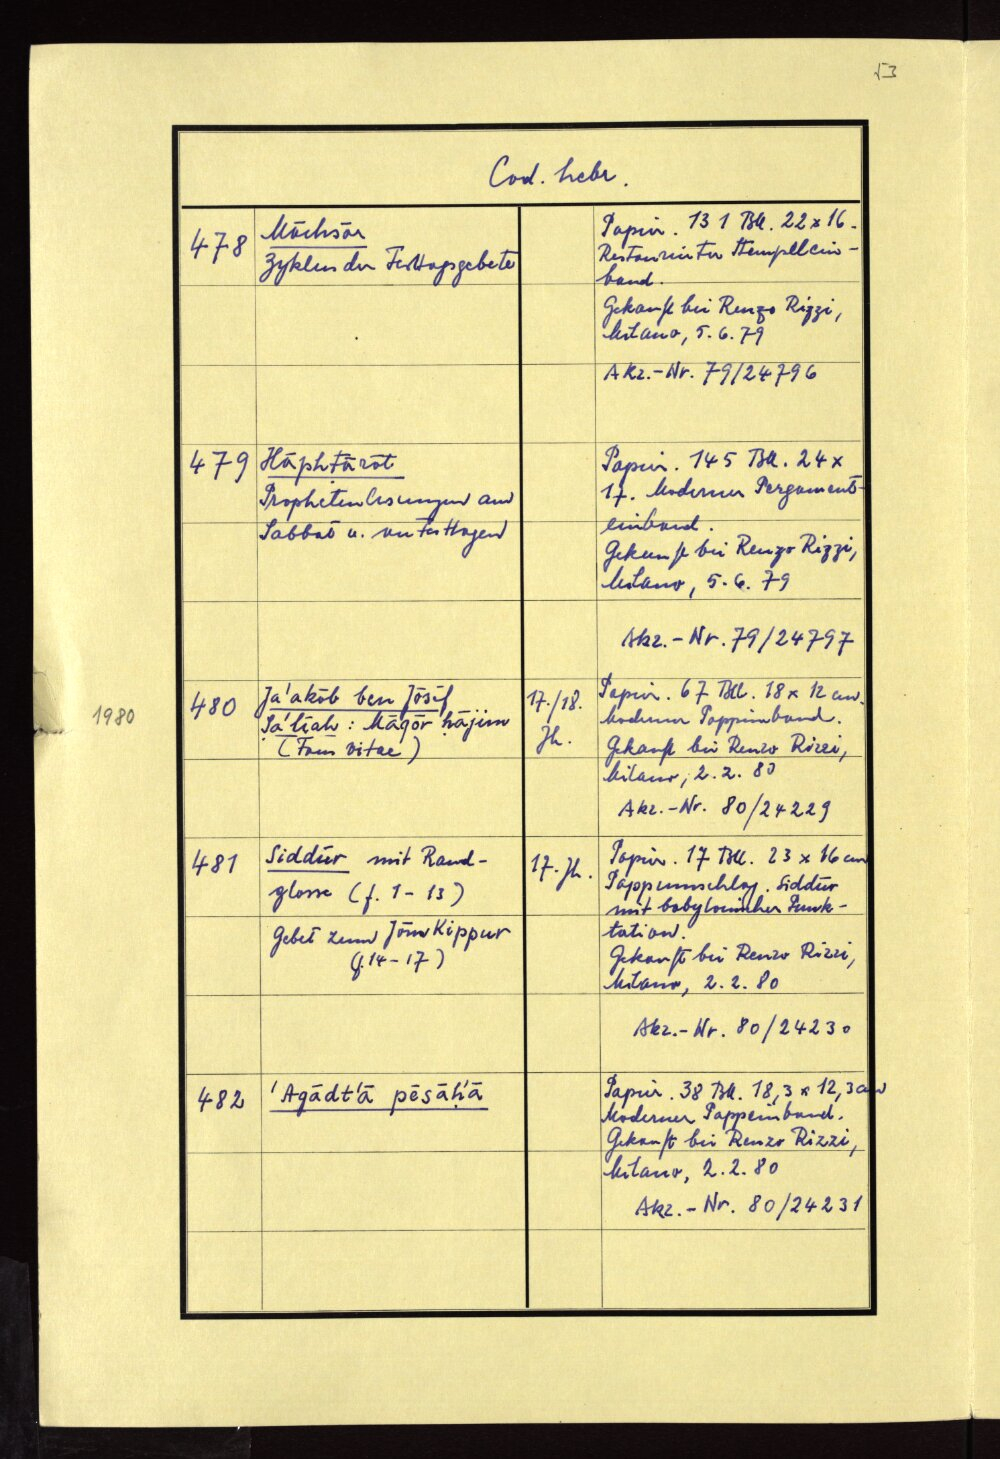 53
Cod. hebr.
478
Māchsār
Zyklus der Festtagsgebete
Papier. 131 Bll. 22 x 16.
Restaurierter Stempellein-
band.
Gekauft bei Renzo Rizzi,
Milano, 5.6.79
Akz.-Nr. 79/24796
479
Hāphtārōt
Prophetenlesungen am
Sabbat u. an Festtagen
Papier. 145 Bll. 24 x
17. Moderner Pergament-
einband.
Gekauft bei Renzo Rizzi,
Milano, 5.6.79
Akz.-Nr. 79/24797
1980
480
Ja'akōb ben Jōsif
Ṣa'līaḥ: Māqōr ḥājim
(Fons vitae)
17./18.
Jh.
Papier. 67 Bll. 18 x 12 cm.
Moderner Pappeinband.
Gekauft bei Renzo Rizzi,
Milano, 2.2.80
Akz.-Nr. 80/24229
481
Siddūr mit Rand-
glosse (f. 1-13)
Gebet zum Jōm Kippur
(f. 14-17)
17. Jh.
Papier. 17 Bll. 23 x 16 cm
Pappumschlag. Siddūr
mit babylonischer Punk-
tation.
Gekauft bei Renzo Rizzi,
Milano, 2.2.80
Akz.-Nr. 80/24230
482
'Agādt'ā pēsāḥ'ā
Papier. 38 Bll. 18,3 x 12,3 cm
Moderner Pappeinband.
Gekauft bei Renzo Rizzi,
Milano, 2.2.80
Akz.-Nr. 80/24231